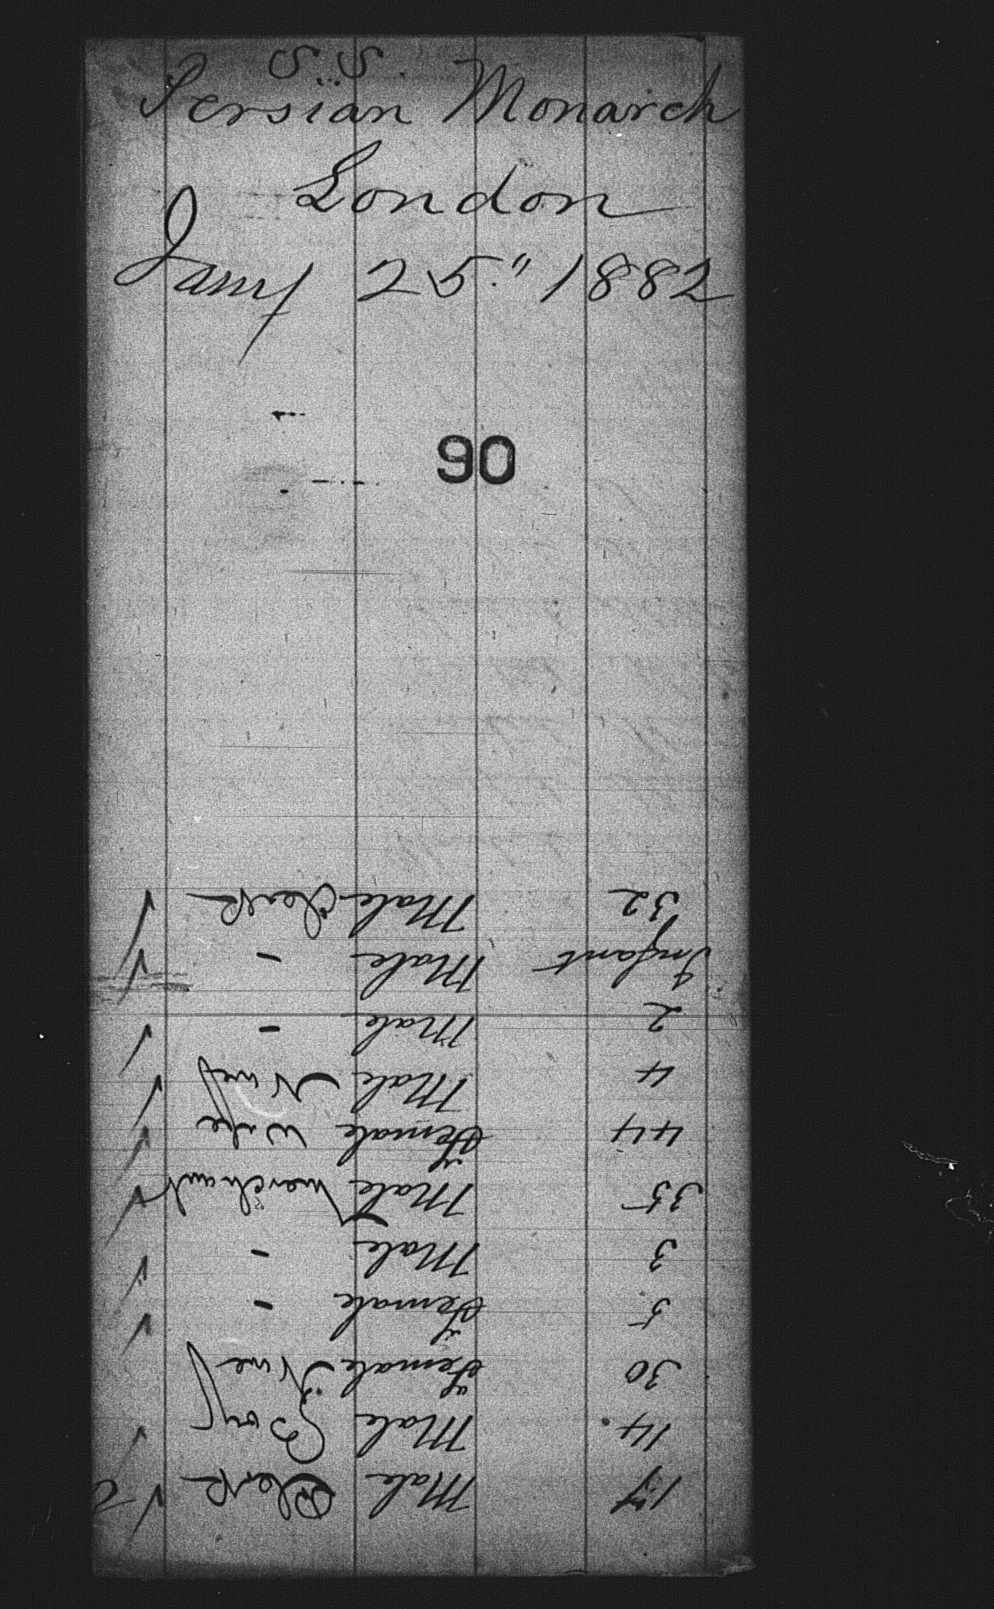 S.S.
Persian Monarch
London
Jany 25" 1882
90
17 Male Clerk
14 Male Boy
30 Female
5 Female -
3 Male -
35 Male Merchant
44 Female Wife
4 Male
2 Male -
Infant Male -
32 Male Clerk